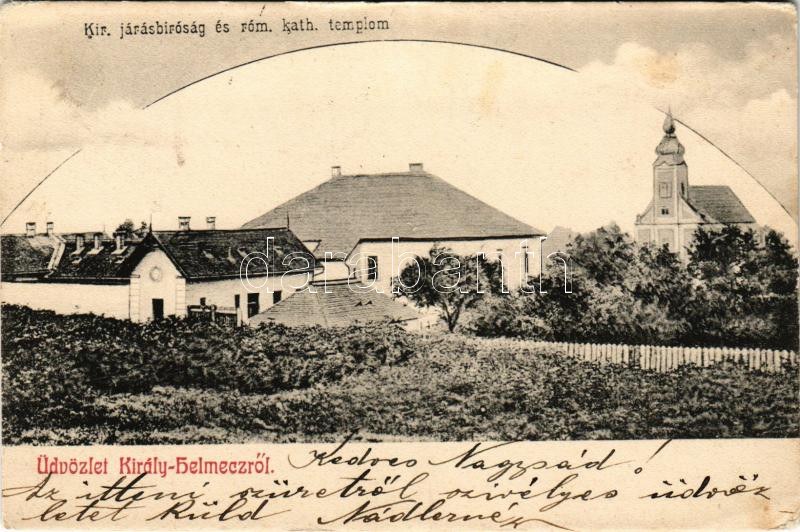 Kir. járásbiróság és róm. kath. templom
darabanth.com
Üdvözlet Király-Helmeczről.
Kedves Nagysád!
Az itteni szüretről szivélyes üdvöz
letet küld Nádlerné